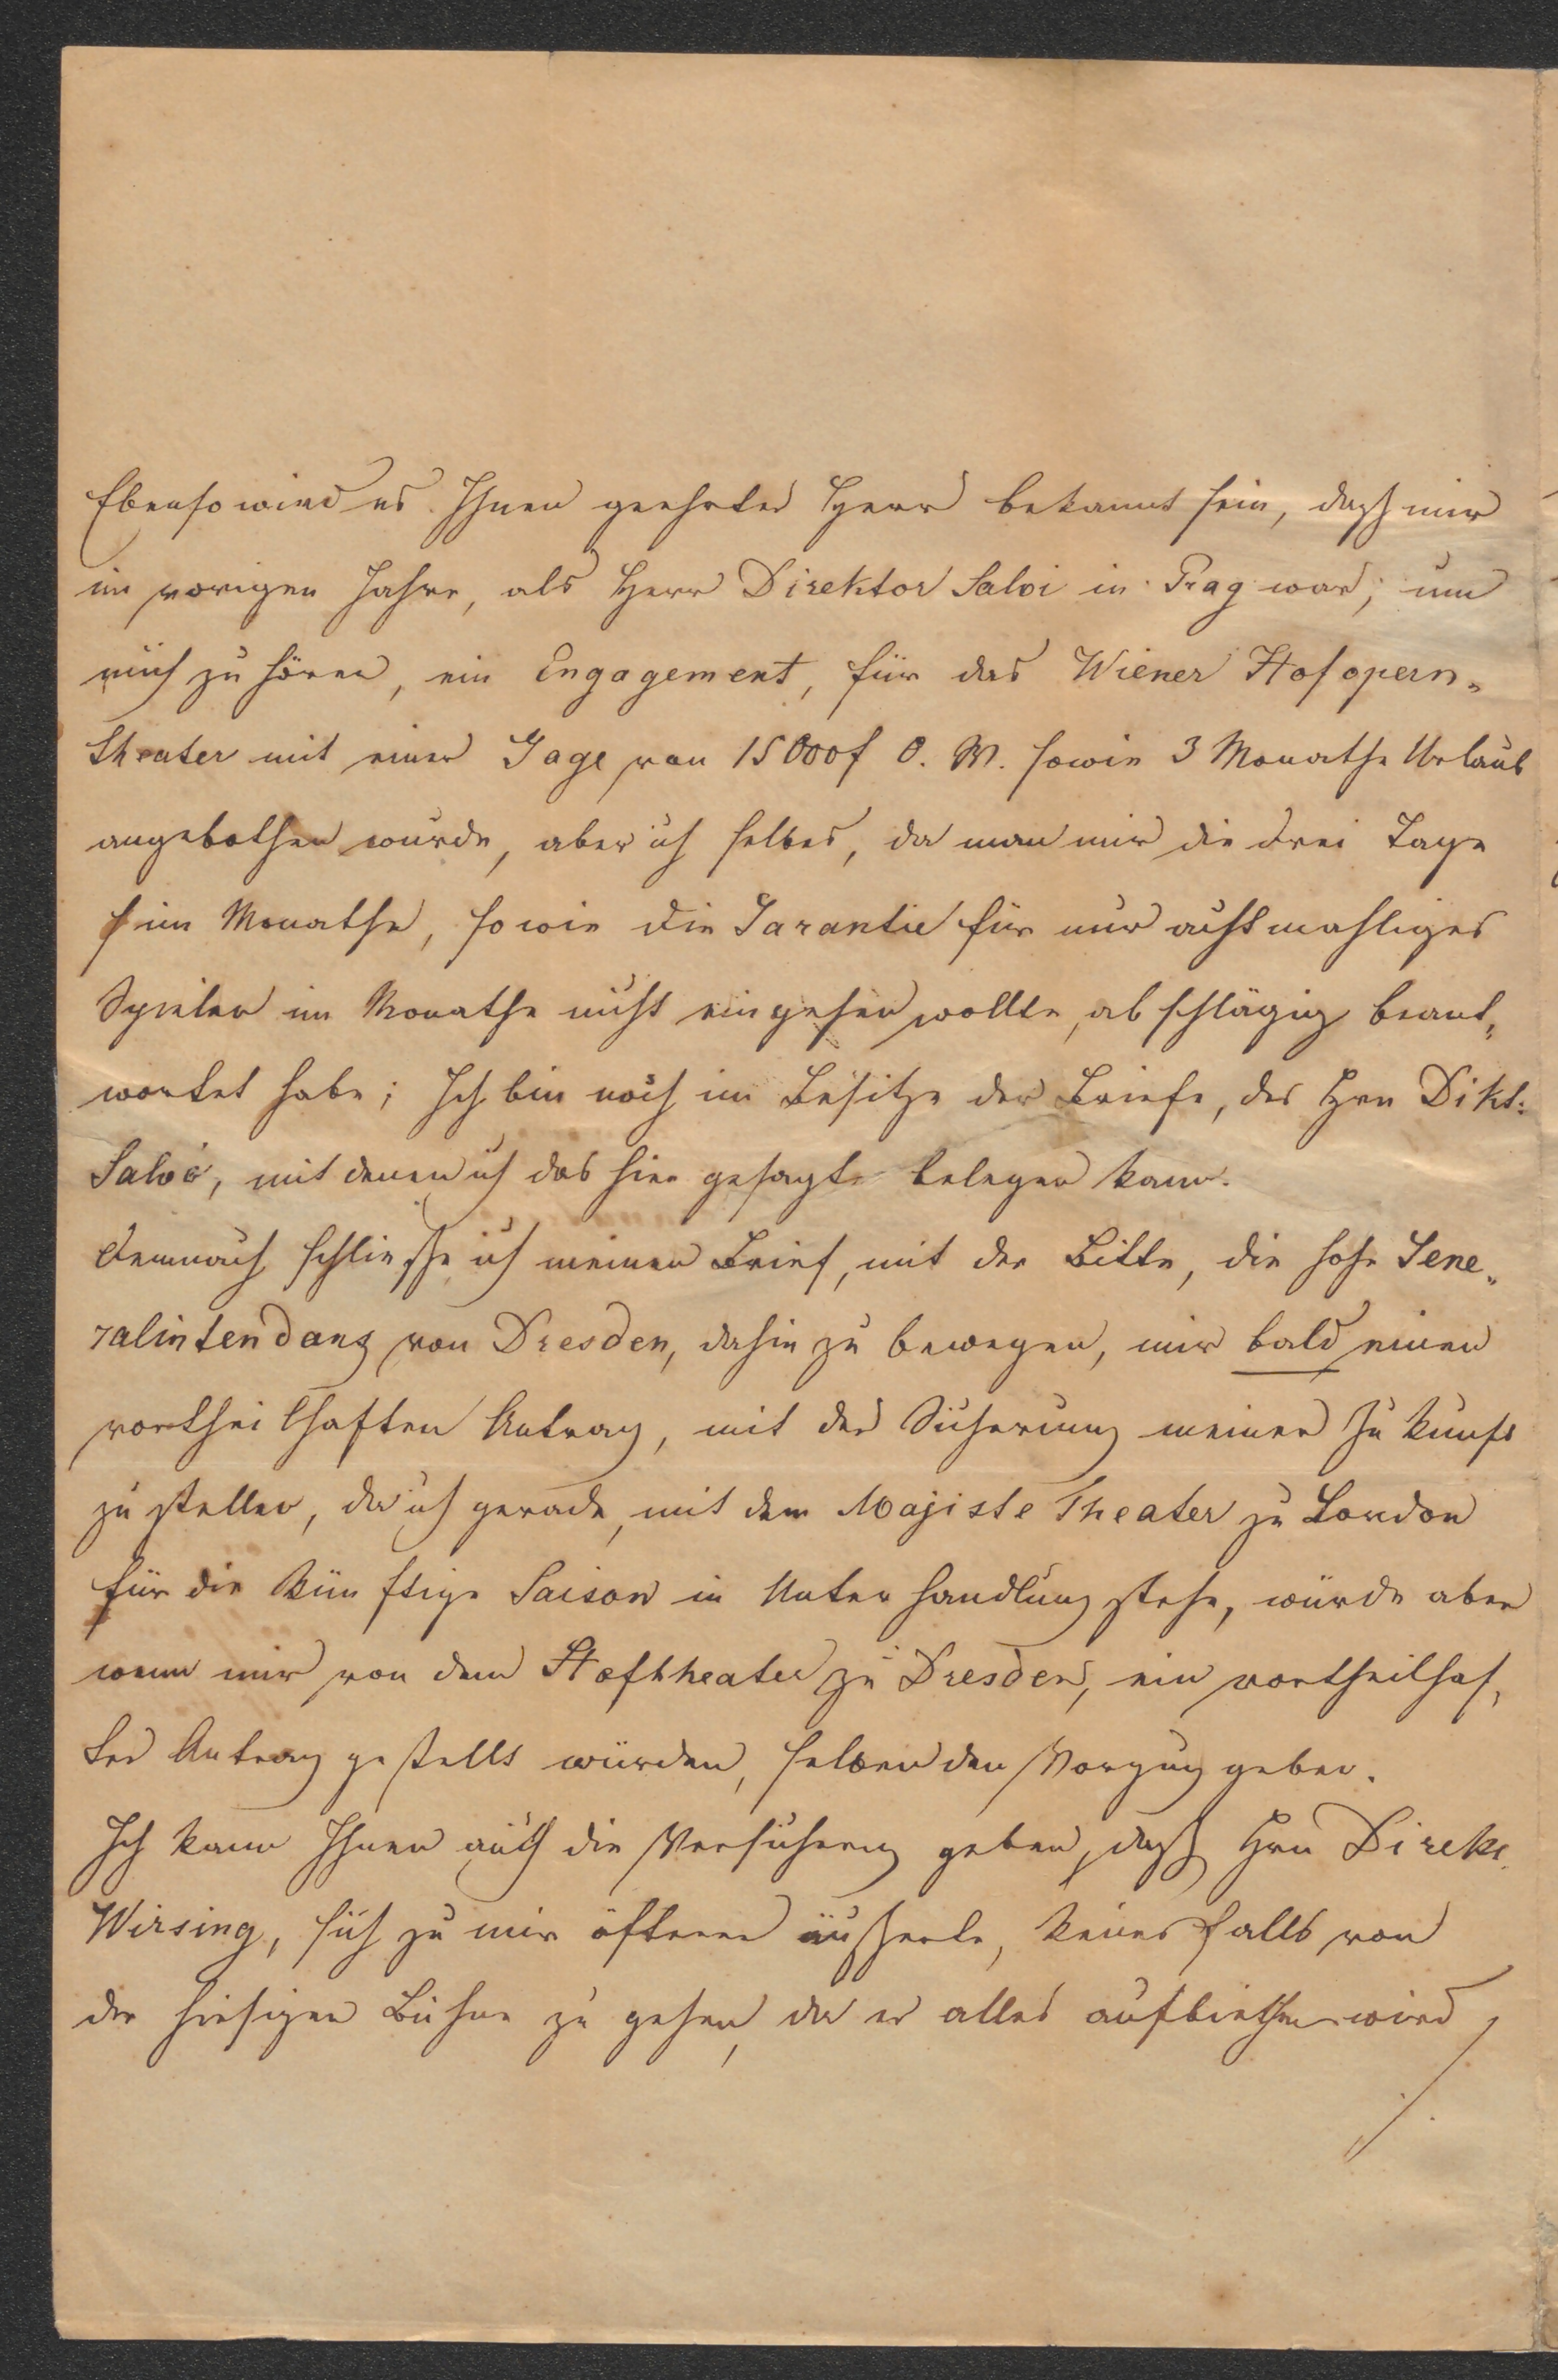 Ebenso wird es Ihnen geehrter Herr bekannt sein, dasz mir
im vorigen Jahre, als Herr Direktor Salvi in Prag war, um
mich zu hören, ein Engagement, für das Wiener Hofopern„
theater mit einer Gage von 15000f O. W. sowie 3 Monathe Urlaub
angebothen wurde, aber ich selbes, da man mir die drei Tage
im Monathe, sowie die Garantie für nur achtmahliges
Spielen im Monathe nicht eingehen wollte, abschlägig beant„
wortet habe; Ich bin noch im Besitze der Briefe, des Hrn Dikt:
Salvi, mit denen ich das hier gesagte belegen kann.
Demnach schliesse ich meinen Brief, mit der Bitte, die hohe Gene„
ralintendanz von Dresden, dahin zu bewegen, mir bald einen
vortheilhaften Antrag, mit der Sicherung meiner Zukunft
zu stellen, da ich gerade, mit dem Majiste Theater zu London
für die künftige Saison in Unterhandlung stehe, würde aber
wenn mir von dem Hoftheater zu Dresden, ein vortheilhaf„
ter Antrag gestellt würden, selben den Vorzug geben.
Ich kann Ihnen auch die Versicherung geben, dasz Hrn Direkt.
Wirsing, sich zu mir öfterer äußerte, keinesfalls von
der hiesigen Bühne zu gehen, da er alles aufbiethen wird
./.